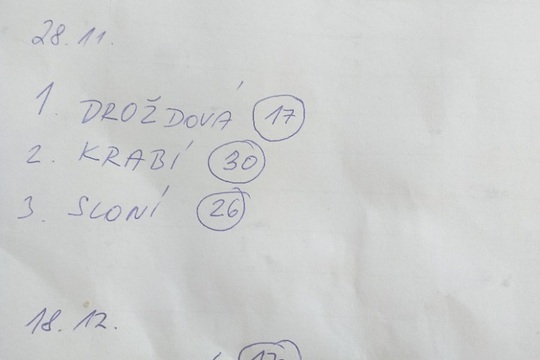 28.11.
1. DROŽDOVÁ 17
2. KRABÍ 30
3. SLONÍ 26
18.12.